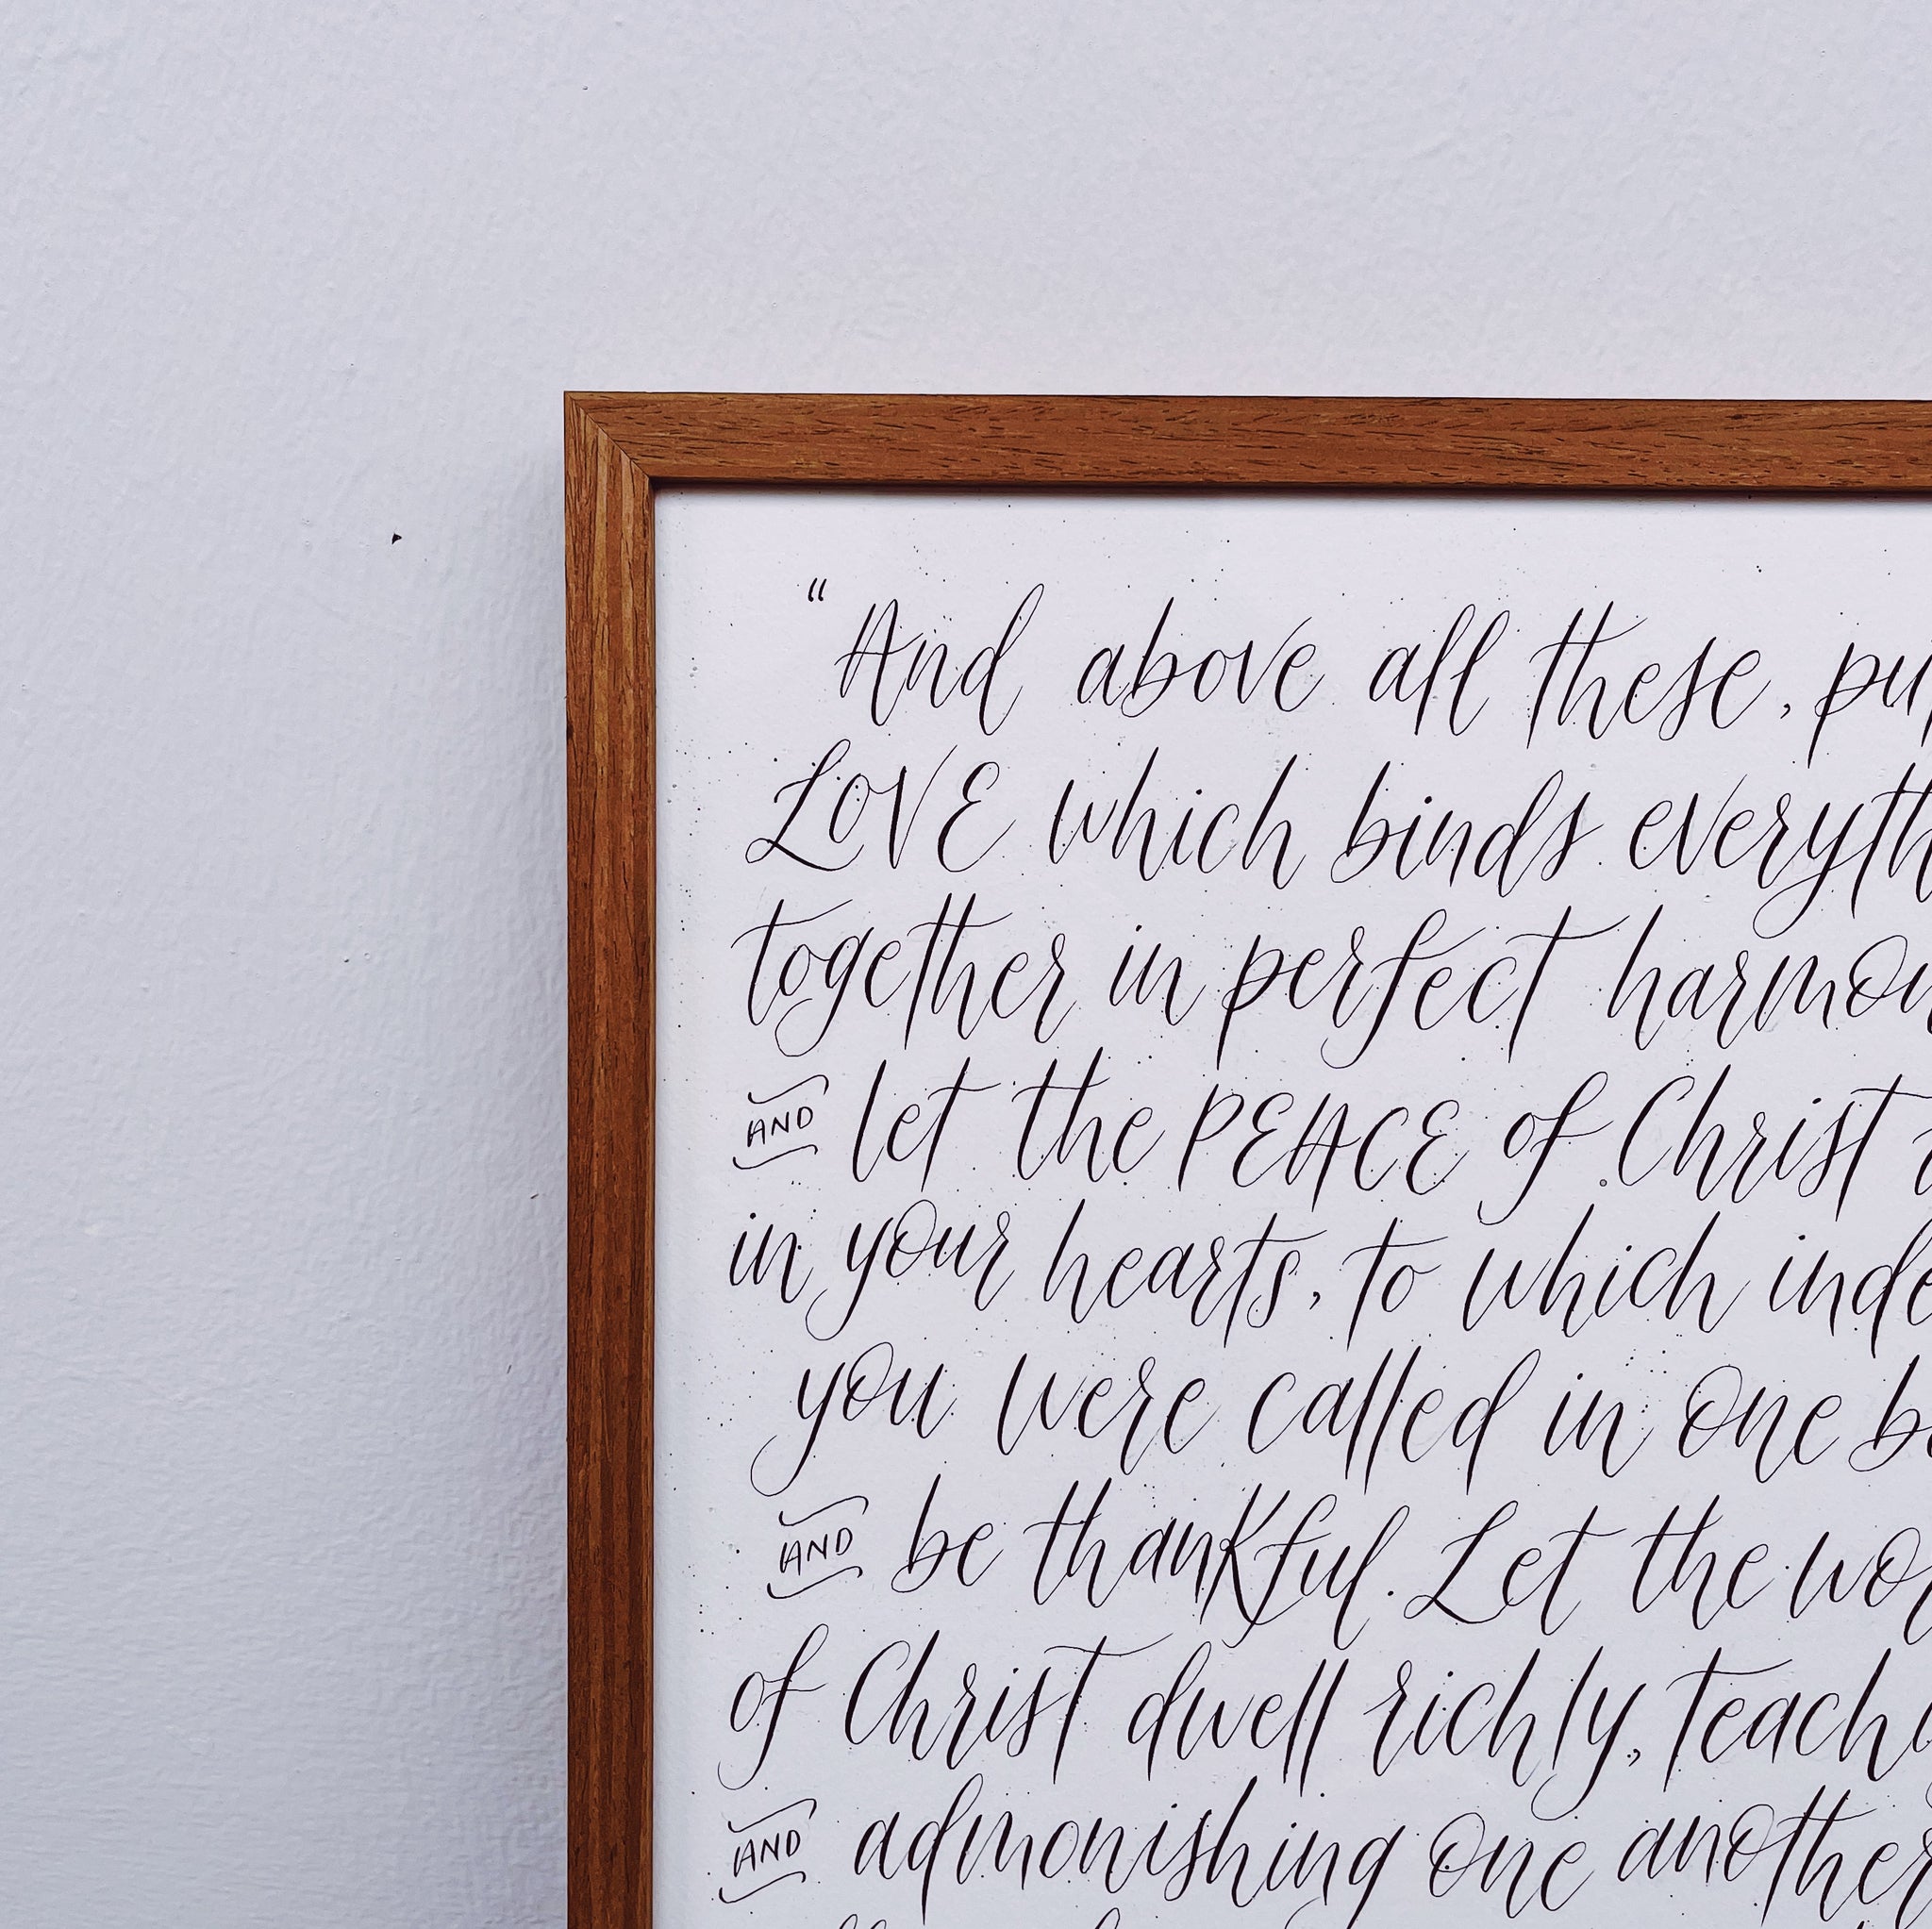 “And above all these, pu
LOVE which binds everyth
together in perfect harmon
AND let the PEACE of Christ
in your hearts, to which inde
you were called in one b
AND be thankful. Let the wor
of Christ dwell richly, teach
AND admonishing one another